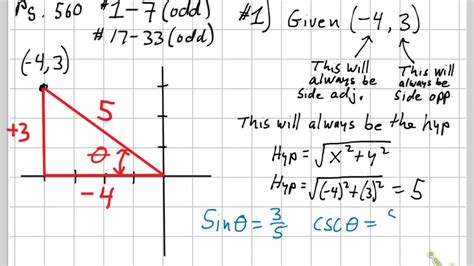 Pg. 560 #1-7 (odd)
#17-33 (odd)
#1) Given (-4, 3)
This will always be side adj.
This will always be side opp
(-4,3)
+3
5
θ
-4
This will always be the hyp
Hyp = √x²+y²
Hyp = √(-4)²+(3)² = 5
Sinθ = 3/5 cscθ =